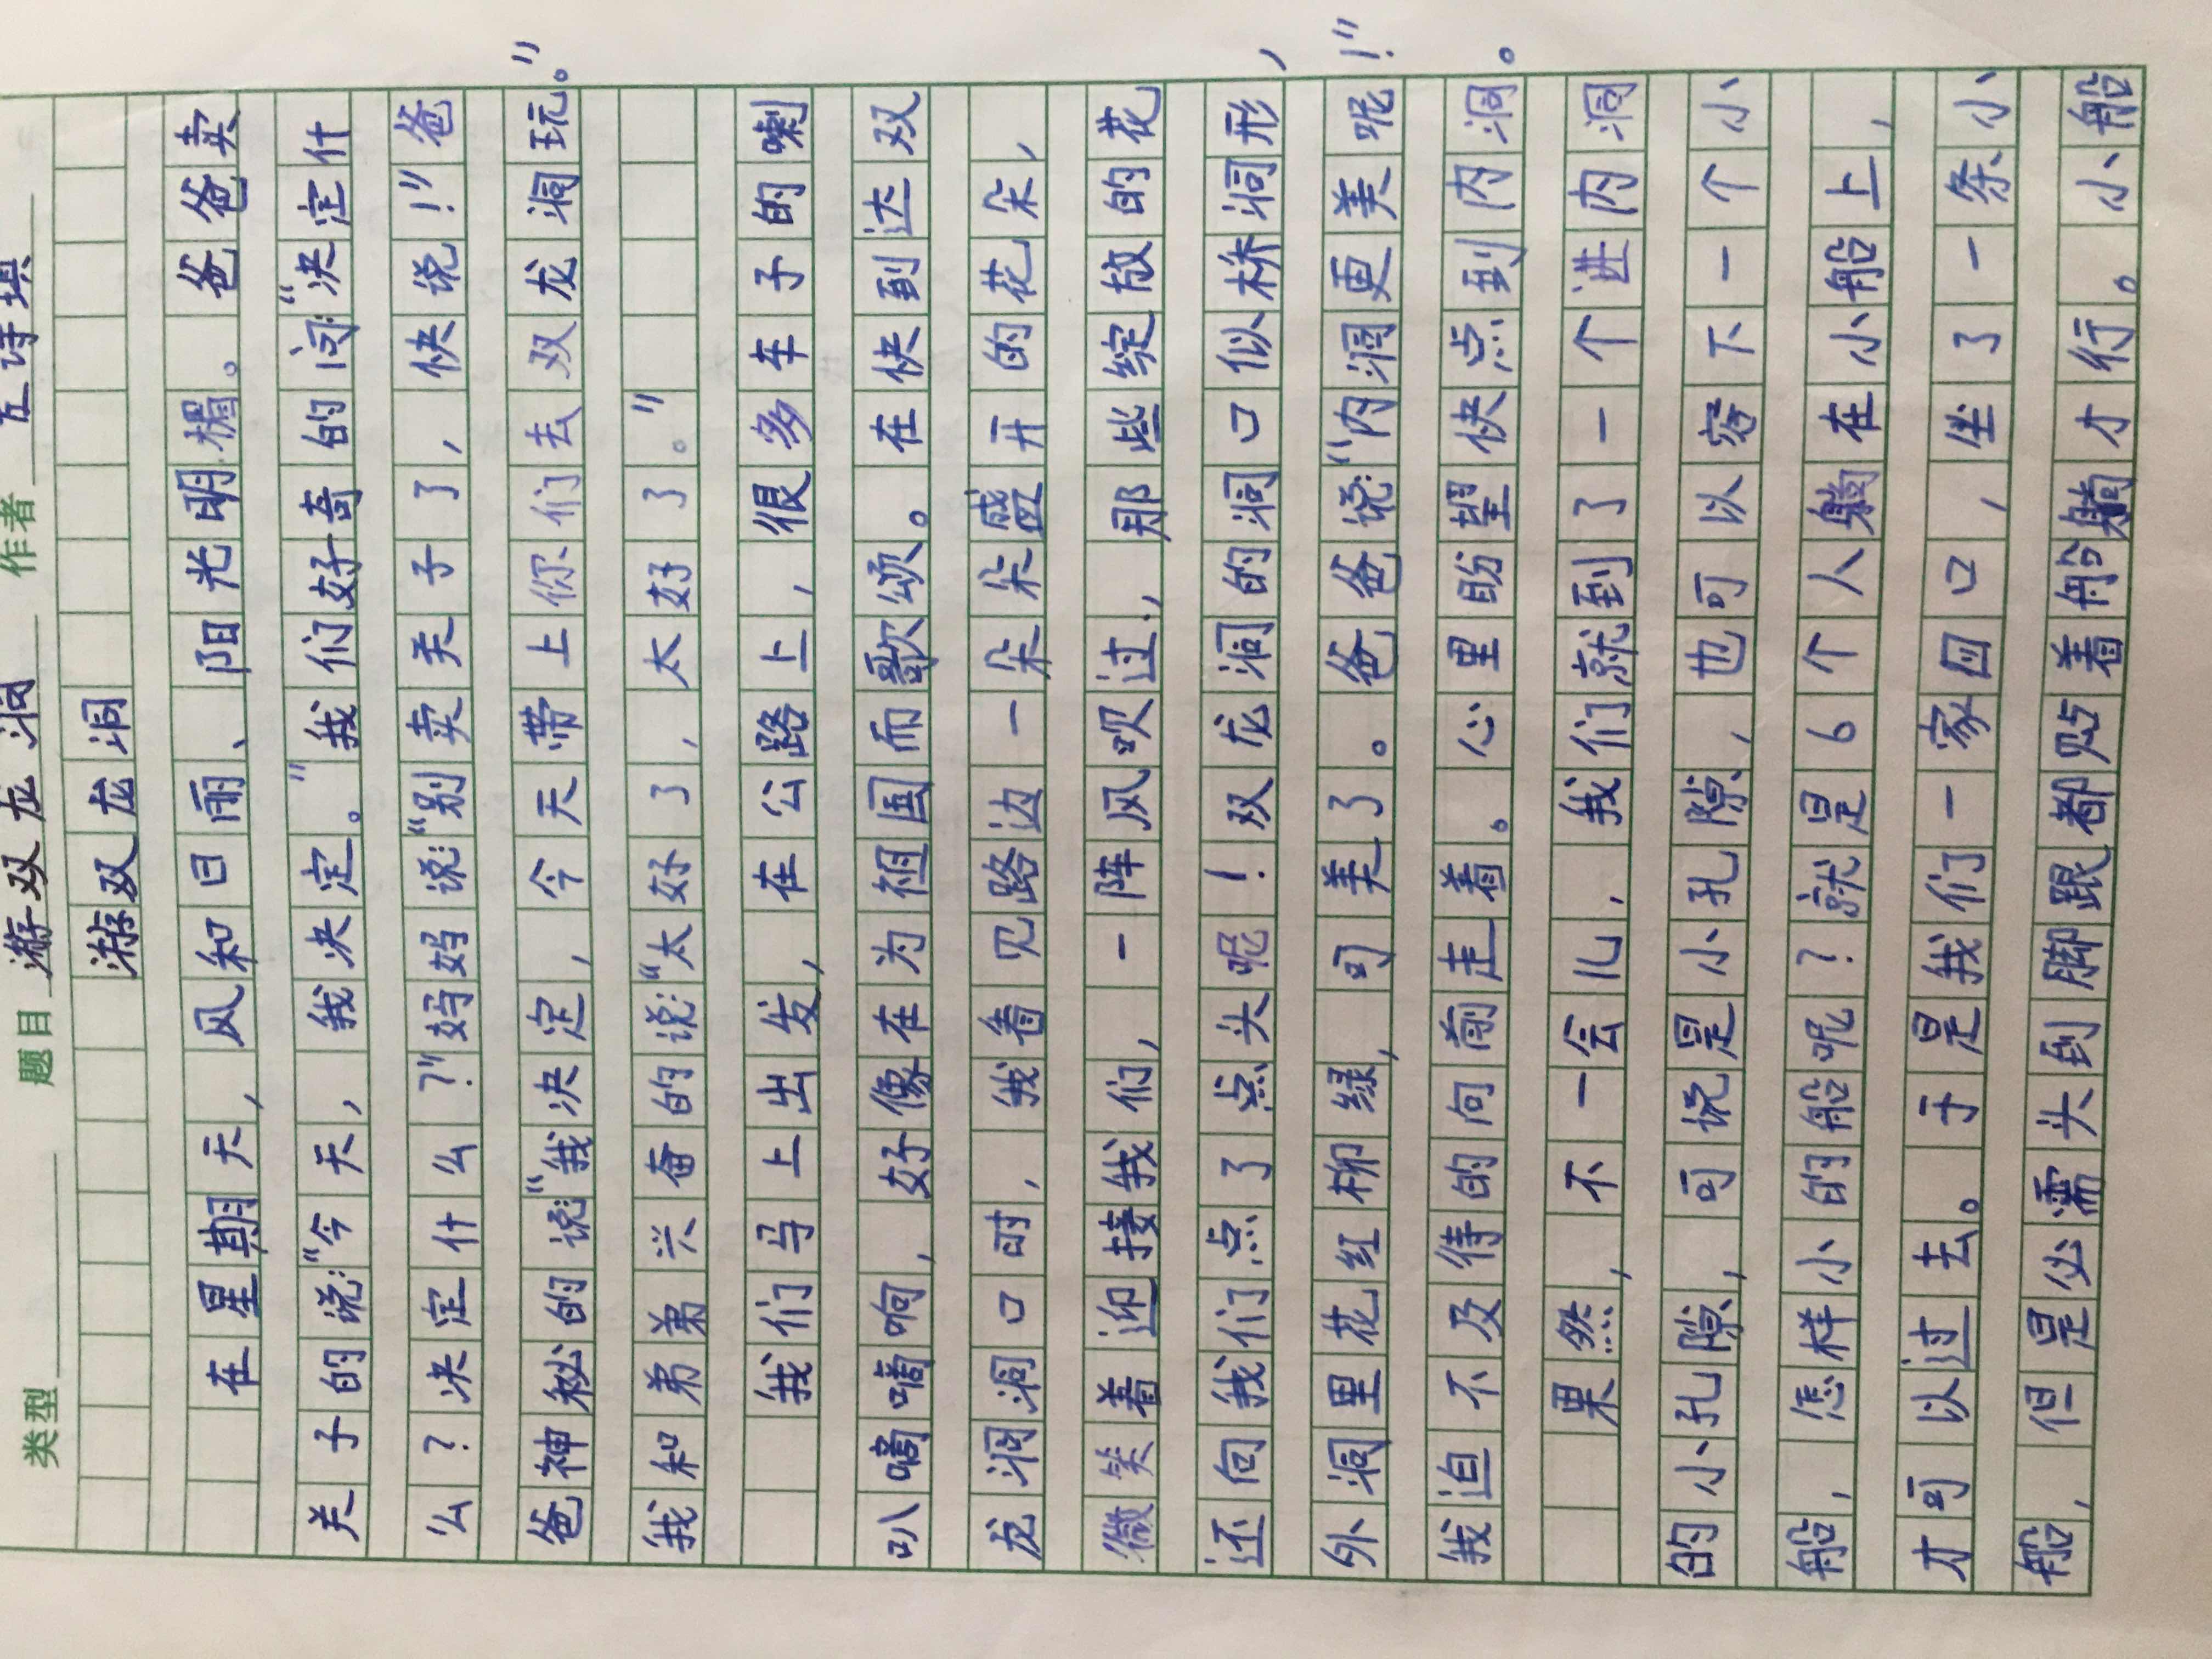 类型 题目 游双龙洞 作者
游双龙洞
在星期天，风和日丽、阳光明媚。爸爸卖
关子的说：“今天，我决定。”我们好奇的问：“决定什
么？决定什么？”妈妈说：“别卖关子了，快说！”爸
爸神秘的说：“我决定，今天带上你们去双龙洞玩。”
我和弟弟兴奋的说：“太好了，太好了。”
我们马上出发，在公路上，很多车子的喇
叭嘀嘀响，好像在为祖国而歌颂。在快到达双
龙洞洞口时，我看见路边一朵朵盛开的花朵，
微笑着迎接我们，一阵风吹过，那些绽放的花
还向我们点了点头呢！双龙洞的洞口似桥洞形，
外洞里花红柳绿，可美了。爸爸说：“内洞更美呢！”
我迫不及待的向前走着。心里盼望快点到内洞。
果然，不一会儿，我们就到了一个进内洞
的小孔隙，可说是小孔隙，也可以容下一个小
船，怎样小的船呢？就是6个人躺在小船上，
才可以过去。于是我们一家四口，坐了一条小
船，但是必需头到脚跟都贴着船躺才行。小船